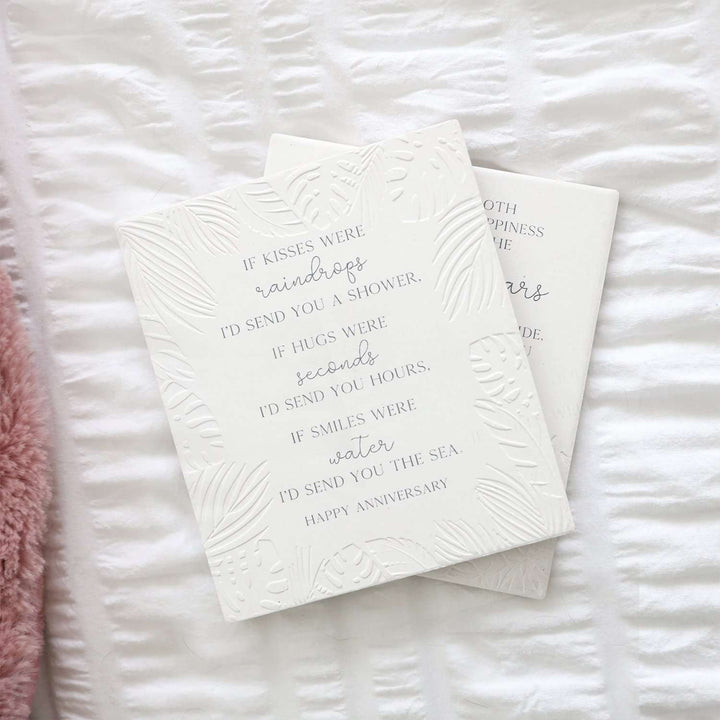 IF KISSES WERE
raindrops
I'D SEND YOU A SHOWER,
IF HUGS WERE
seconds
I'D SEND YOU HOURS,
IF SMILES WERE
water
I'D SEND YOU THE SEA.
HAPPY ANNIVERSARY